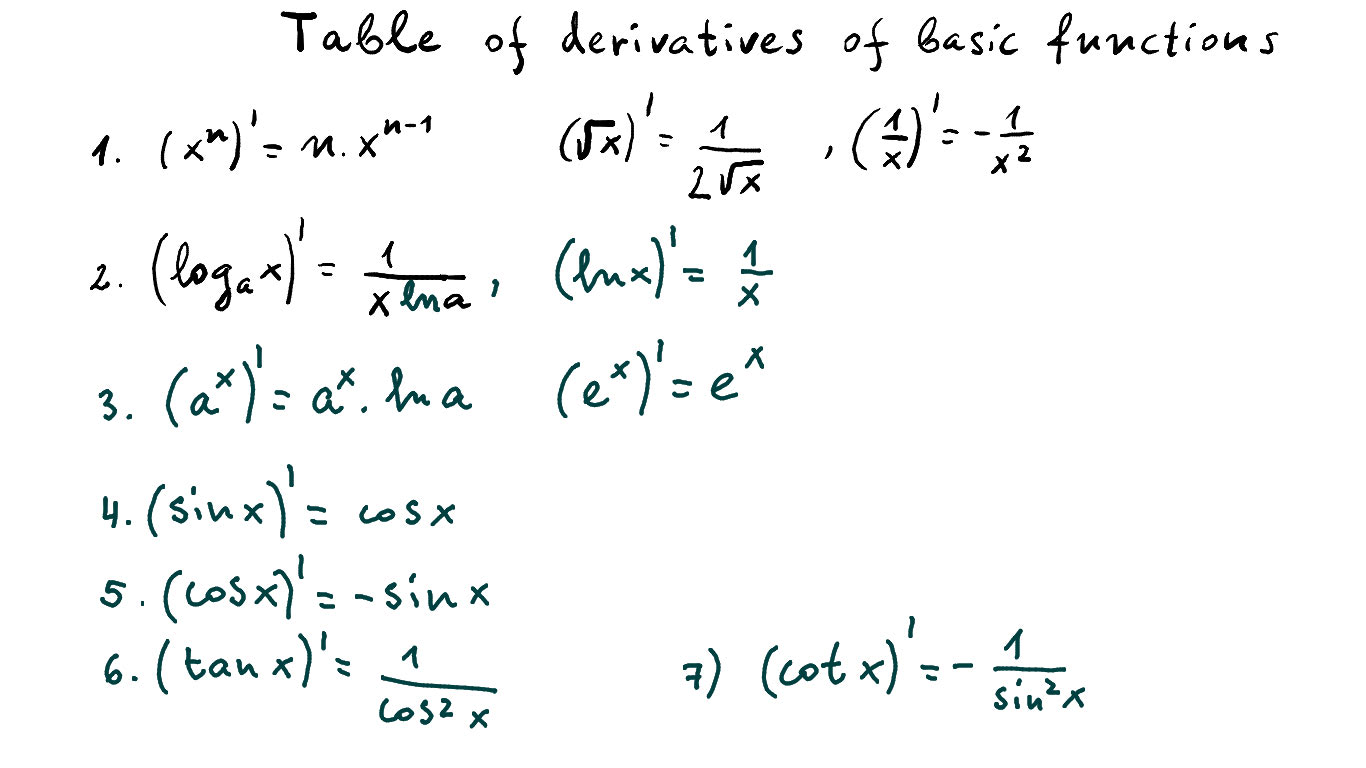 Table of derivatives of basic functions
1. (xⁿ)' = n · xⁿ⁻¹ (√x)' = 1/(2√x) , (1/x)' = -1/x²
2. (logₐ x)' = 1/(x ln a) , (ln x)' = 1/x
3. (aˣ)' = aˣ · ln a (eˣ)' = eˣ
4. (sin x)' = cos x
5. (cos x)' = - sin x
6. (tan x)' = 1/(cos² x) 7) (cot x)' = - 1/(sin² x)